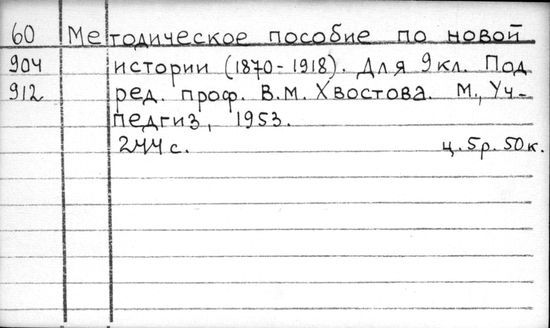 60 Методическое пособие по новой
904 истории (1870-1918). Для 9 кл. Под
912 ред. проф. В.М. Хвостова. М., Уч-
педгиз, 1953.
244 с. ц. 5р. 50к.